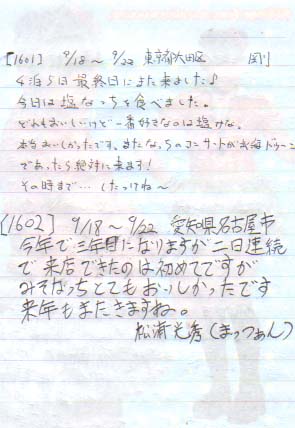 [1601] 9/18 ～ 9/22 東京都大田区
4泊5日最終日にまた来ました♪
今日は塩なっちを食べました。
どれもおいしいけど一番好きなのは塩かな。
本当おいしかったです。またなっちのコンサートが北海ドリーム
であったら絶対に来ます!
その時まで… したってね～
[1602] 9/18 ～ 9/22 愛知県名古屋市
今年で三年目になりますが二日連続
で来店できたのは初めてですが
みそなっちとてもおいしかったです
来年もまたきますね。
松浦光秀(まっつぁん)